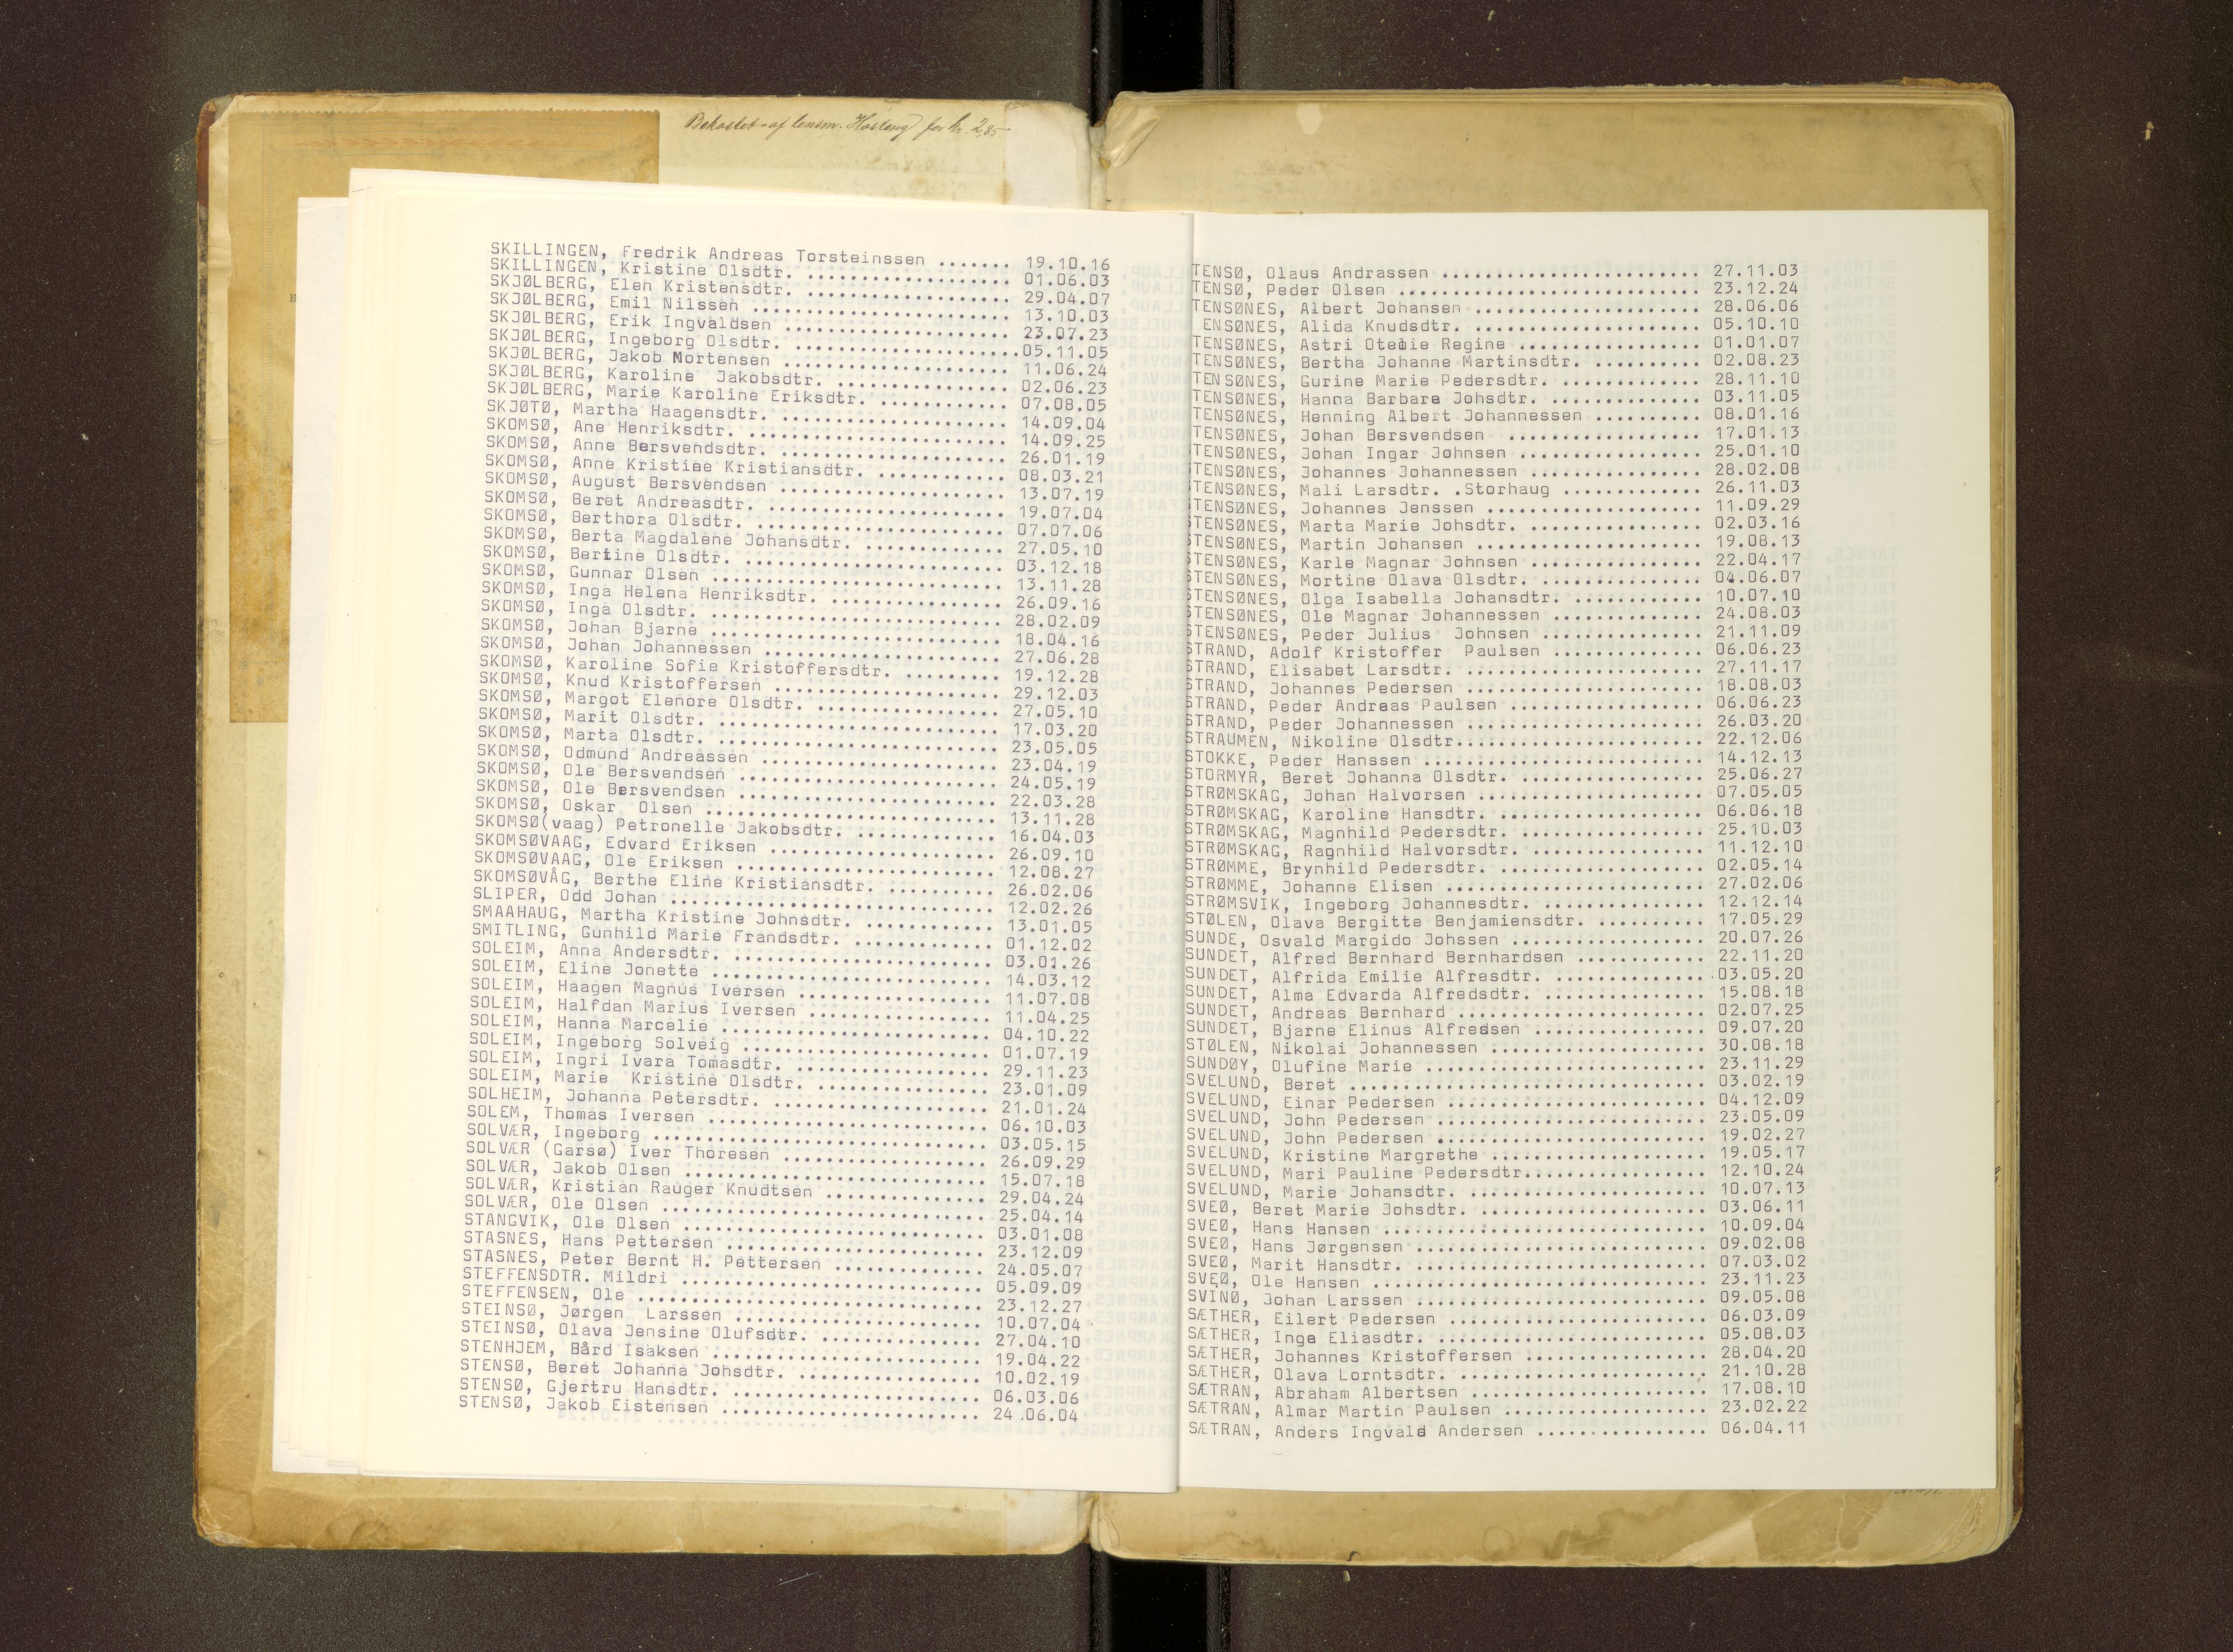 Bekostet af lensm. Hosteng for kr. 2,85
SKILLINGEN, Fredrik Andreas Torsteinssen ....... 19.10.16
SKILLINGEN, Kristine Olsdtr. ................... 01.06.03
SKJØLBERG, Elen Kristensdtr. ................... 29.04.07
SKJØLBERG, Emil Nilssen ........................ 13.10.03
SKJØLBERG, Erik Ingvaldsen ..................... 23.07.23
SKJØLBERG, Ingeborg Olsdtr. ....................05.11.05
SKJØLBERG, Jakob Mortensen ..................... 11.06.24
SKJØLBERG, Karoline Jakobsdtr. ................. 02.06.23
SKJØLBERG, Marie Karoline Eriksdtr. ............ 07.08.05
SKJØTØ, Martha Haagensdtr. ..................... 14.09.04
SKOMSØ, Ane Henriksdtr. ........................ 14.09.25
SKOMSØ, Anne Bersvendsdtr. ..................... 26.01.19
SKOMSØ, Anne Kristine Kristiansdtr. ............ 08.03.21
SKOMSØ, August Bersvendsen ..................... 13.07.19
SKOMSØ, Beret Andreasdtr. ...................... 19.07.04
SKOMSØ, Berthora Olsdtr. ....................... 07.07.06
SKOMSØ, Berta Magdalene Johansdtr. ............. 27.05.10
SKOMSØ, Bertine Olsdtr. ........................ 03.12.18
SKOMSØ, Gunnar Olsen ........................... 13.11.28
SKOMSØ, Inga Helena Henriksdtr. ................ 26.09.16
SKOMSØ, Inga Olsdtr. ........................... 28.02.09
SKOMSØ, Johan Bjarne ........................... 18.04.16
SKOMSØ, Johan Johannessen ...................... 27.06.28
SKOMSØ, Karoline Sofie Kristoffersdtr. ......... 19.12.28
SKOMSØ, Knud Kristoffersen ..................... 29.12.03
SKOMSØ, Margot Elenore Olsdtr. ................. 27.05.10
SKOMSØ, Marit Olsdtr. .......................... 17.03.20
SKOMSØ, Marta Olsdtr. .......................... 23.05.05
SKOMSØ, Odmund Andreassen ...................... 23.04.19
SKOMSØ, Ole Bersvendsen ........................ 24.05.19
SKOMSØ, Ole Bersvendsen ........................ 22.03.28
SKOMSØ, Oskar Olsen ............................ 13.11.28
SKOMSØ(vaag) Petronelle Jakobsdtr. ............. 16.04.03
SKOMSØVAAG, Edvard Eriksen ..................... 26.09.10
SKOMSØVAAG, Ole Eriksen ........................ 12.08.27
SKOMSØVÅG, Berthe Eline Kristiansdtr. .......... 26.02.06
SLIPER, Odd Johan .............................. 12.02.26
SMAAHAUG, Martha Kristine Johnsdtr. ............ 13.01.05
SMITLING, Gunhild Marie Frandsdtr. ............. 01.12.02
SOLEIM, Anna Andersdtr. ........................ 03.01.26
SOLEIM, Eline Jonette .......................... 14.03.12
SOLEIM, Haagen Magnus Iversen .................. 11.07.08
SOLEIM, Halfdan Marius Iversen ................. 11.04.25
SOLEIM, Hanna Marcelie ......................... 04.10.22
SOLEIM, Ingeborg Solveig ....................... 01.07.19
SOLEIM, Ingri Ivara Tomasdtr. .................. 29.11.23
SOLEIM, Marie Kristine Olsdtr. ................. 23.01.09
SOLHEIM, Johanna Petersdtr. .................... 21.01.24
SOLEM, Thomas Iversen .......................... 06.10.03
SOLVÆR, Ingeborg ............................... 03.05.15
SOLVÆR (Garsø) Iver Thoresen ................... 26.09.29
SOLVÆR, Jakob Olsen ............................ 15.07.18
SOLVÆR, Kristian Rauger Knudtsen ............... 29.04.24
SOLVÆR, Ole Olsen .............................. 25.04.14
STANGVIK, Ole Olsen ............................ 03.01.08
STASNES, Hans Pettersen ........................ 23.12.09
STASNES, Peter Bernt H. Pettersen .............. 24.05.07
STEFFENSDTR. Mildri ............................ 05.09.09
STEFFENSEN, Ole ................................ 23.12.27
STEINSØ, Jørgen Larssen ........................ 10.07.04
STEINSØ, Olava Jensine Olufsdtr. ............... 27.04.10
STENHJEM, Bård Isaksen ......................... 19.04.22
STENSØ, Beret Johanna Johsdtr. ................. 10.02.19
STENSØ, Gjertru Hansdtr. ....................... 06.03.06
STENSØ, Jakob Eistensen ........................ 24.06.04
TENSØ, Olaus Andrassen ......................... 27.11.03
TENSØ, Peder Olsen ............................. 23.12.24
TENSØNES, Albert Johansen ...................... 28.06.06
ENSØNES, Alida Knudsdtr. ...................... 05.10.10
TENSØNES, Astri Otebie Regine .................. 01.01.07
TENSØNES, Bertha Johanne Martinsdtr. ........... 02.08.23
TENSØNES, Gurine Marie Pedersdtr. .............. 28.11.10
TENSØNES, Hanna Barbare Johsdtr. ............... 03.11.05
TENSØNES, Henning Albert Johannessen ........... 08.01.16
TENSØNES, Johan Bersvendsen ................... 17.01.13
TENSØNES, Johan Ingar Johnsen .................. 25.01.10
TENSØNES, Johannes Johannessen ................. 28.02.08
TENSØNES, Mali Larsdtr. .Storhaug .............. 26.11.03
TENSØNES, Johannes Jenssen ..................... 11.09.29
TENSØNES, Marta Marie Johsdtr. ................. 02.03.16
STENSØNES, Martin Johansen ...................... 19.08.13
STENSØNES, Karle Magnar Johnsen ................. 22.04.17
STENSØNES, Mortine Olava Olsdtr. ................ 04.06.07
STENSØNES, Olga Isabella Johansdtr. ............. 10.07.10
STENSØNES, Ole Magnar Johannessen ............... 24.08.03
STENSØNES, Peder Julius Johnsen ................ 21.11.09
STRAND, Adolf Kristoffer Paulsen ............... 06.06.23
STRAND, Elisabet Larsdtr. ....................... 27.11.17
STRAND, Johannes Pedersen ....................... 18.08.03
STRAND, Peder Andreas Paulsen ................... 06.06.23
STRAND, Peder Johannessen ....................... 26.03.20
STRAUMEN, Nikoline Olsdtr........................ 22.12.06
STOKKE, Peder Hanssen ........................... 14.12.13
STORMYR, Beret Johanna Olsdtr. .................. 25.06.27
STRØMSKAG, Johan Halvorsen ...................... 07.05.05
STRØMSKAG, Karoline Hansdtr. .................... 06.06.18
STRØMSKAG, Magnhild Pedersdtr. .................. 25.10.03
STRØMSKAG, Ragnhild Halvorsdtr. ................. 11.12.10
STRØMME, Brynhild Pedersdtr. .................... 02.05.14
STRØMME, Johanne Elisen ......................... 27.02.06
STRØMSVIK, Ingeborg Johannesdtr. ................ 12.12.14
STØLEN, Olava Bergitte Benjamiensdtr. ........... 17.05.29
SUNDE, Osvald Margido Johssen ................... 20.07.26
SUNDET, Alfred Bernhard Bernhardsen ............. 22.11.20
SUNDET, Alfrida Emilie Alfresdtr. ............... 03.05.20
SUNDET, Alma Edvarda Alfredsdtr. ................ 15.08.18
SUNDET, Andreas Bernhard ........................ 02.07.25
SUNDET, Bjarne Elinus Alfredsen ................. 09.07.20
STØLEN, Nikolai Johannessen ..................... 30.08.18
SUNDØY, Olufine Marie ........................... 23.11.29
SVELUND, Beret .................................. 03.02.19
SVELUND, Einar Pedersen ......................... 04.12.09
SVELUND, John Pedersen .......................... 23.05.09
SVELUND, John Pedersen .......................... 19.02.27
SVELUND, Kristine Margrethe ..................... 19.05.17
SVELUND, Mari Pauline Pedersdtr.................. 12.10.24
SVELUND, Marie Johansdtr. ....................... 10.07.13
SVEØ, Beret Marie Johsdtr. ...................... 03.06.11
SVEØ, Hans Hansen ............................... 10.09.04
SVEØ, Hans Jørgensen ............................ 09.02.08
SVEØ, Marit Hansdtr. ............................ 07.03.02
SVEØ, Ole Hansen ................................ 23.11.23
SVINØ, Johan Larssen ............................ 09.05.08
SÆTHER, Eilert Pedersen ......................... 06.03.09
SÆTHER, Inga Eliasdtr. .......................... 05.08.03
SÆTHER, Johannes Kristoffersen .................. 28.04.20
SÆTHER, Olava Lorntsdtr. ........................ 21.10.28
SÆTRAN, Abraham Albertsen ....................... 17.08.10
SÆTRAN, Almar Martin Paulsen .................... 23.02.22
SÆTRAN, Anders Ingvald Andersen ................. 06.04.11